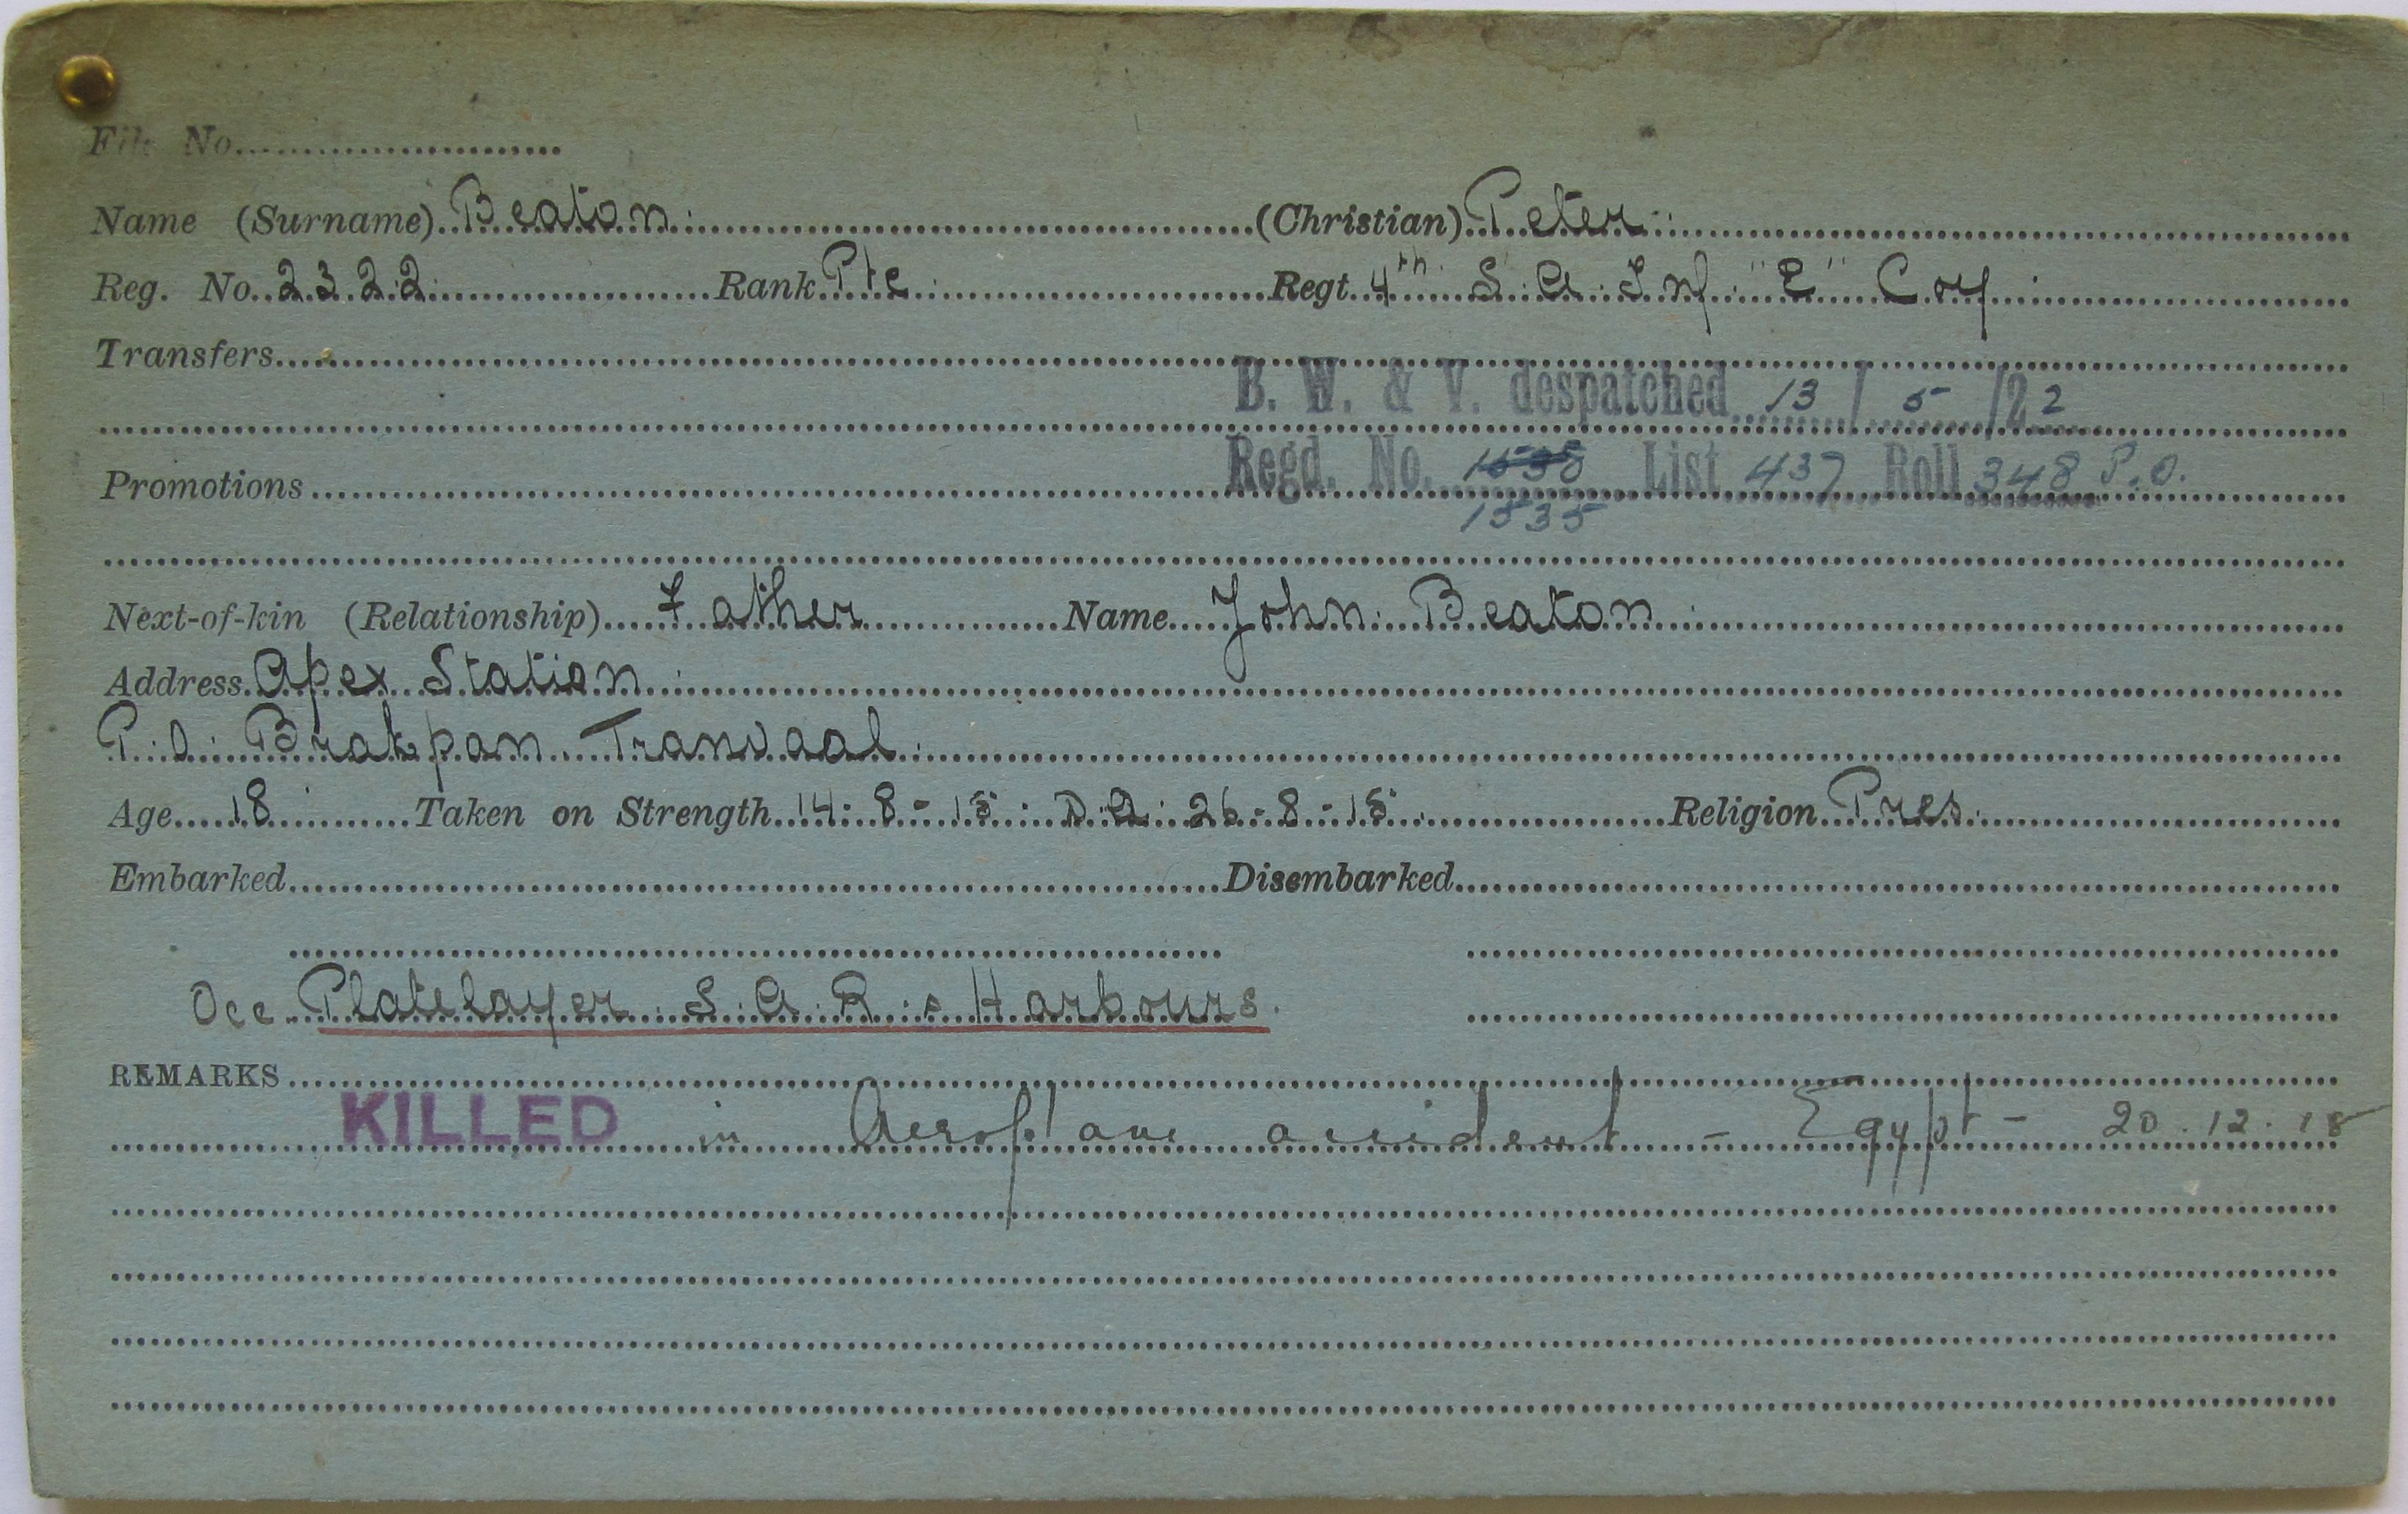 File No.
Name (Surname) Beaton. (Christian) Peter.
Reg. No. 2322. Rank Pte. Regt. 4th S.A. Inf. "E" Coy.
Transfers
B. W. & V. despatched 13/5/22
Promotions Regd. No. 1538 List 437 Roll 348 P.O.
1535
Next-of-kin (Relationship) Father Name John Beaton.
Address Apex Station.
P.O. Brakpan Tranvaal.
Age 18. Taken on Strength 14-8-15. D.A. 26-8-15. Religion Pres.
Embarked Disembarked
Occ Platelayer. S.A.R. & Harbours.
REMARKS
KILLED in Aeroplane accident - Egypt - 20.12.18